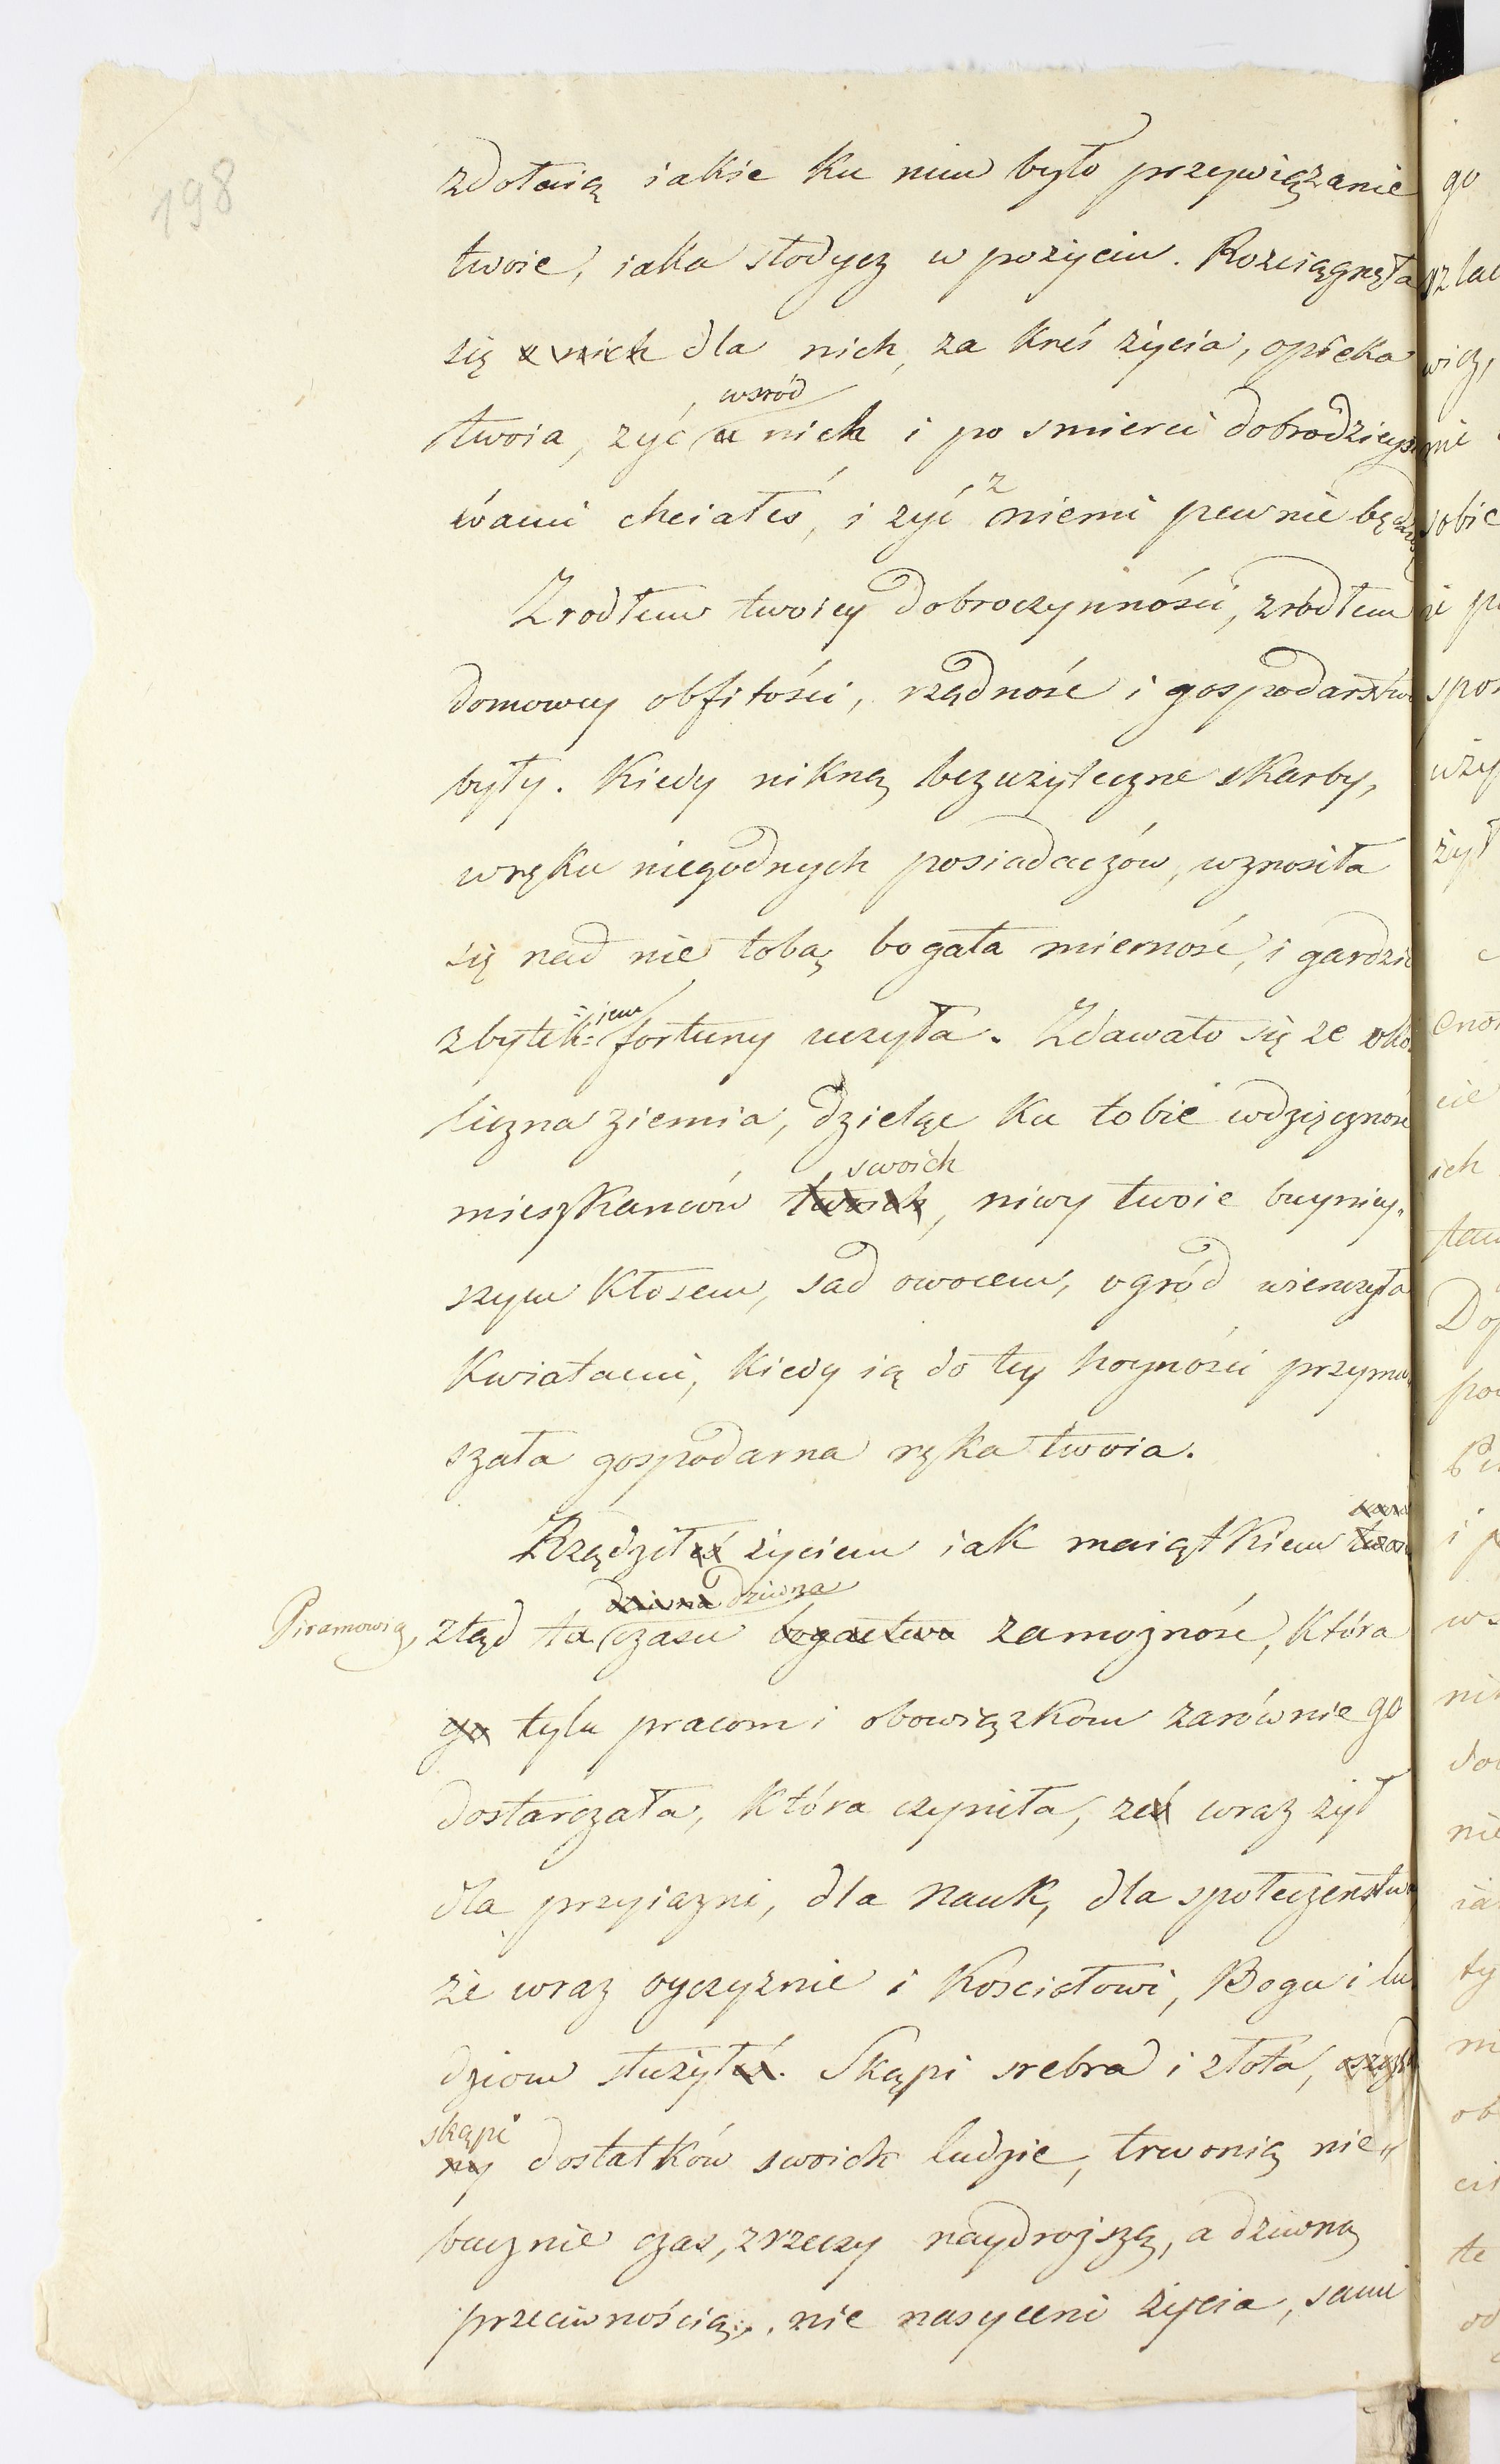 198
zdołaią iakie ku nim było przywiązanie
twoie, iaka słodycz w pożyciu. Rozciągnęła
się z nich dla nich, za kres życia, opieka
wsród
twoia, zyć u nich i po smierci dobrodzieys
twami chciałeś, i zyć z niemi pewnie będziesz
Zrodłem twoiey dobroczynności, zródłem
domowey obfitości, rządność i gospodarstwo
były. Kiedy nikną bezużyteczne skarby,
w ręku niegodnych posiadaczów, wznosiła
się nad nie tobą bogata mierność, i gardzić
iem
zbytek= fortuny uczyła. Zdawało się ze oko
liczna ziemia, dzieląc ku tobie wdzięczność
swoich
mieszkanców twoich, niwy twoie buyniey„
szym kłosem, sad owocem, ogród wienczyła
kwiatami, kiedy ią do tey hoyności przymu
szała gospodarna ręka twoia.
Rządziłeś życiem iak maiątkiem
dziwna dziwna
Piramowicz, ztąd ta czasu bogactwa zamożność, która
go tylu pracom i obowiązkom zarównie go
dostarczała, która czyniła, ześ wraz żył
dla przyiazni, dla nauk, dla społeczeństwa
że wraz oyczyznie i Kościołowi, Bogu i lu
dziom służyłeś. Skąpi srebra i złota,
skąpi
ny dostatków swoich ludzie, trwonią nie„
bacznie czas, z rzeczy naydroższą, a dziwną
przeciwnością, nie nasyceni życia, sami